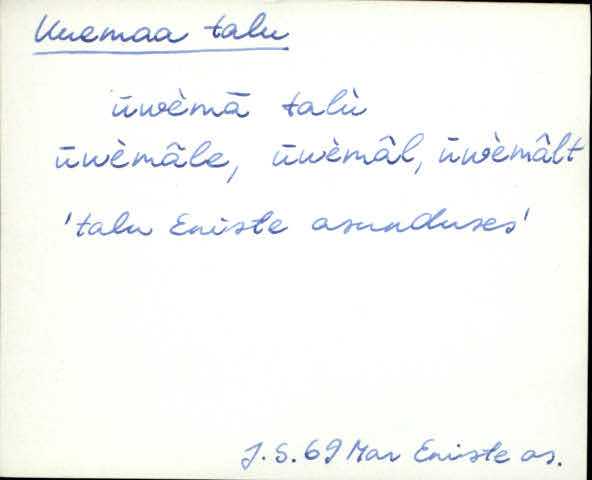 Uuemaa talu
ūwèmā talù
ūwèmâle, ūwèmâl, ūwèmâlt
'talu Eniste asunduses'
J. S. 69 Mar Eniste as.